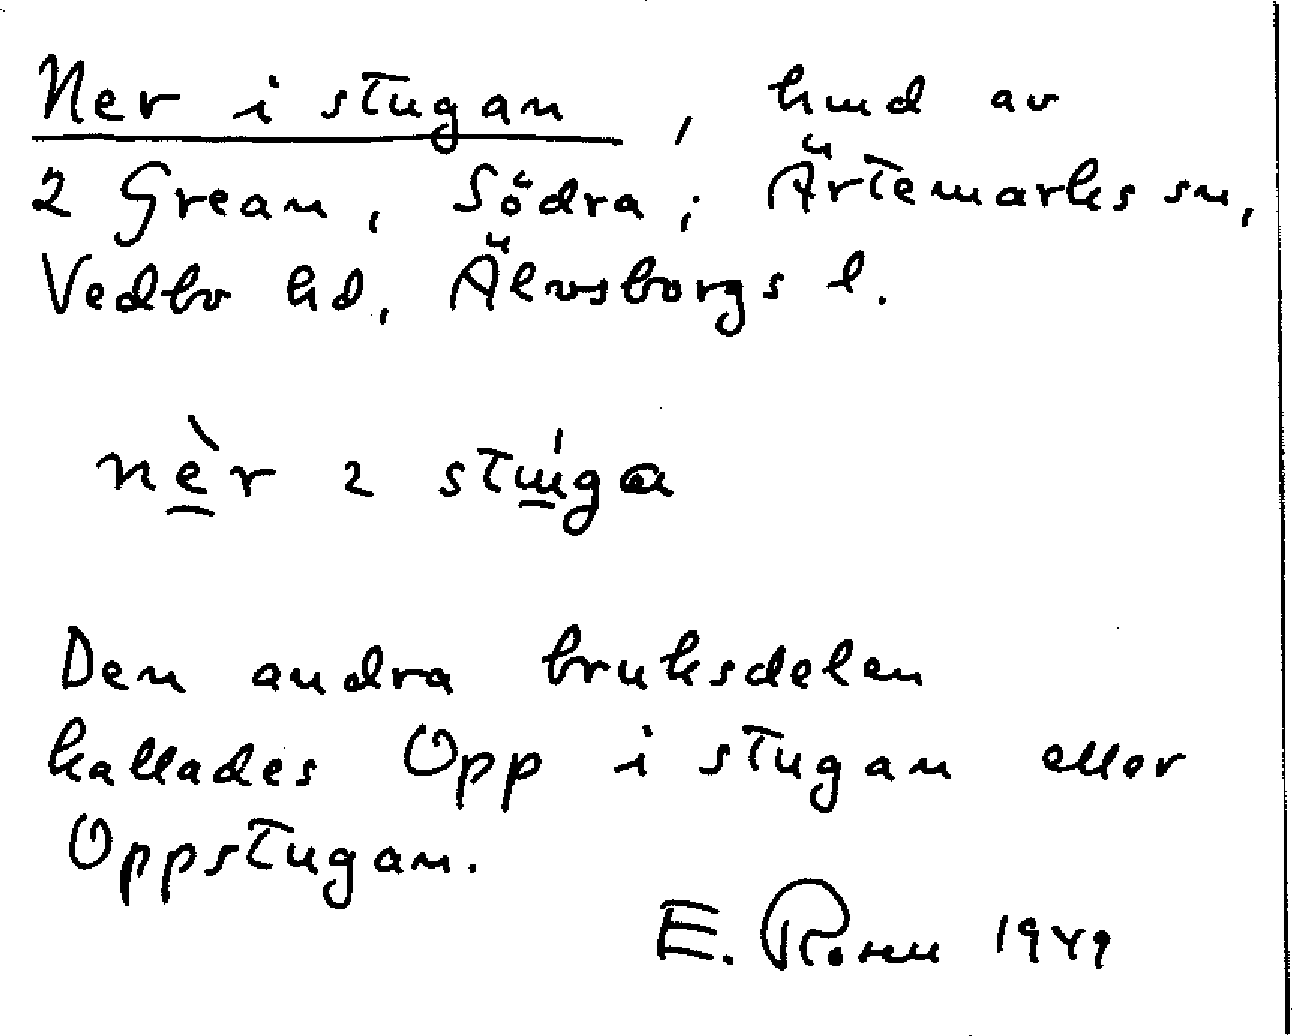 Ner i stugan, hmd av
2 Grean, Södra, i Ärtemarks sn,
Vedbo hd, Älvsborgs l.
nè̲r ɩ stú̲ga
Den andra bruksdelen
kallades Opp i stugan eller
Oppstugan.
E. Rosell 1949